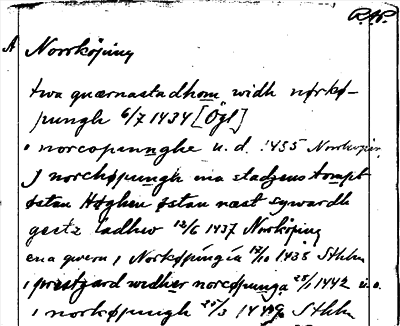 R.W.
A Norrköping
twa quærnastadhom widh nørkø-
pungh 6/7 1434 [Ögl]
i norcopunnghe u.d. 1455 Norrköpin
J norchøpungh ena stadzens tompt
østan Høghen østan næst sywardh
ladhw 12/6 1437 Norköping
ena qwern i Norkøpingia 12/10 1438 Sthlm
i prestgard widher norcøpunga 25/1 1442 u.o.
i norkøpungh 20/3 1449 Sthlm